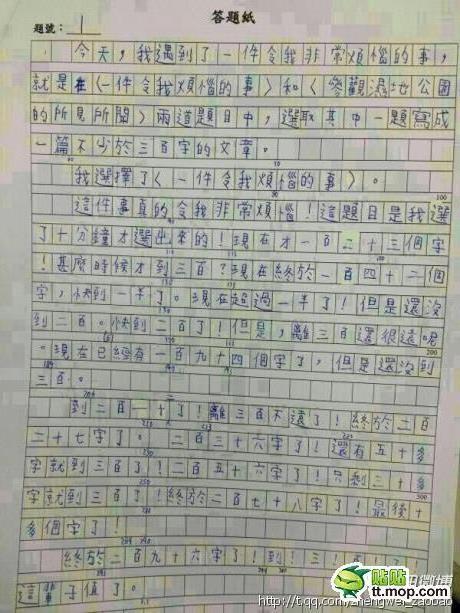 答題紙
題號：1
今天，我遇到了一件令我非常煩惱的事，
就是在〈一件令我煩惱的事〉和〈參觀濕地公園
的所見所聞〉兩道題目中，選取其中一題寫成
一篇不少於三百字的文章。
我選擇了〈一件令我煩惱的事〉。
100
這件事真的令我非常煩惱！這題目是我選
了十分鐘才選出來的！現在才一百二十三個字
！甚麼時候才到三百？現在終於一百四十二個
字，快到一半了。現在超過一半了！但是還沒
到二百。快到二百了！但是，離三百還很遠呢
200
。現在已經有一百九十四個字了，但是還沒到
三百。
到二百一十了！離三百不遠了！終於二百
二十七字了。二百三十六字了！還有五十多
字就到三百了！二百五十六字了！只剩三十多
300
字就到三百了！終於二百七十八字了！最後十
多個字了！
終於二百九十六字了！到！三！百！
這輩子值了。
貼貼
tt.mop.com
http://t.qq.com/zhengwei_zaobao